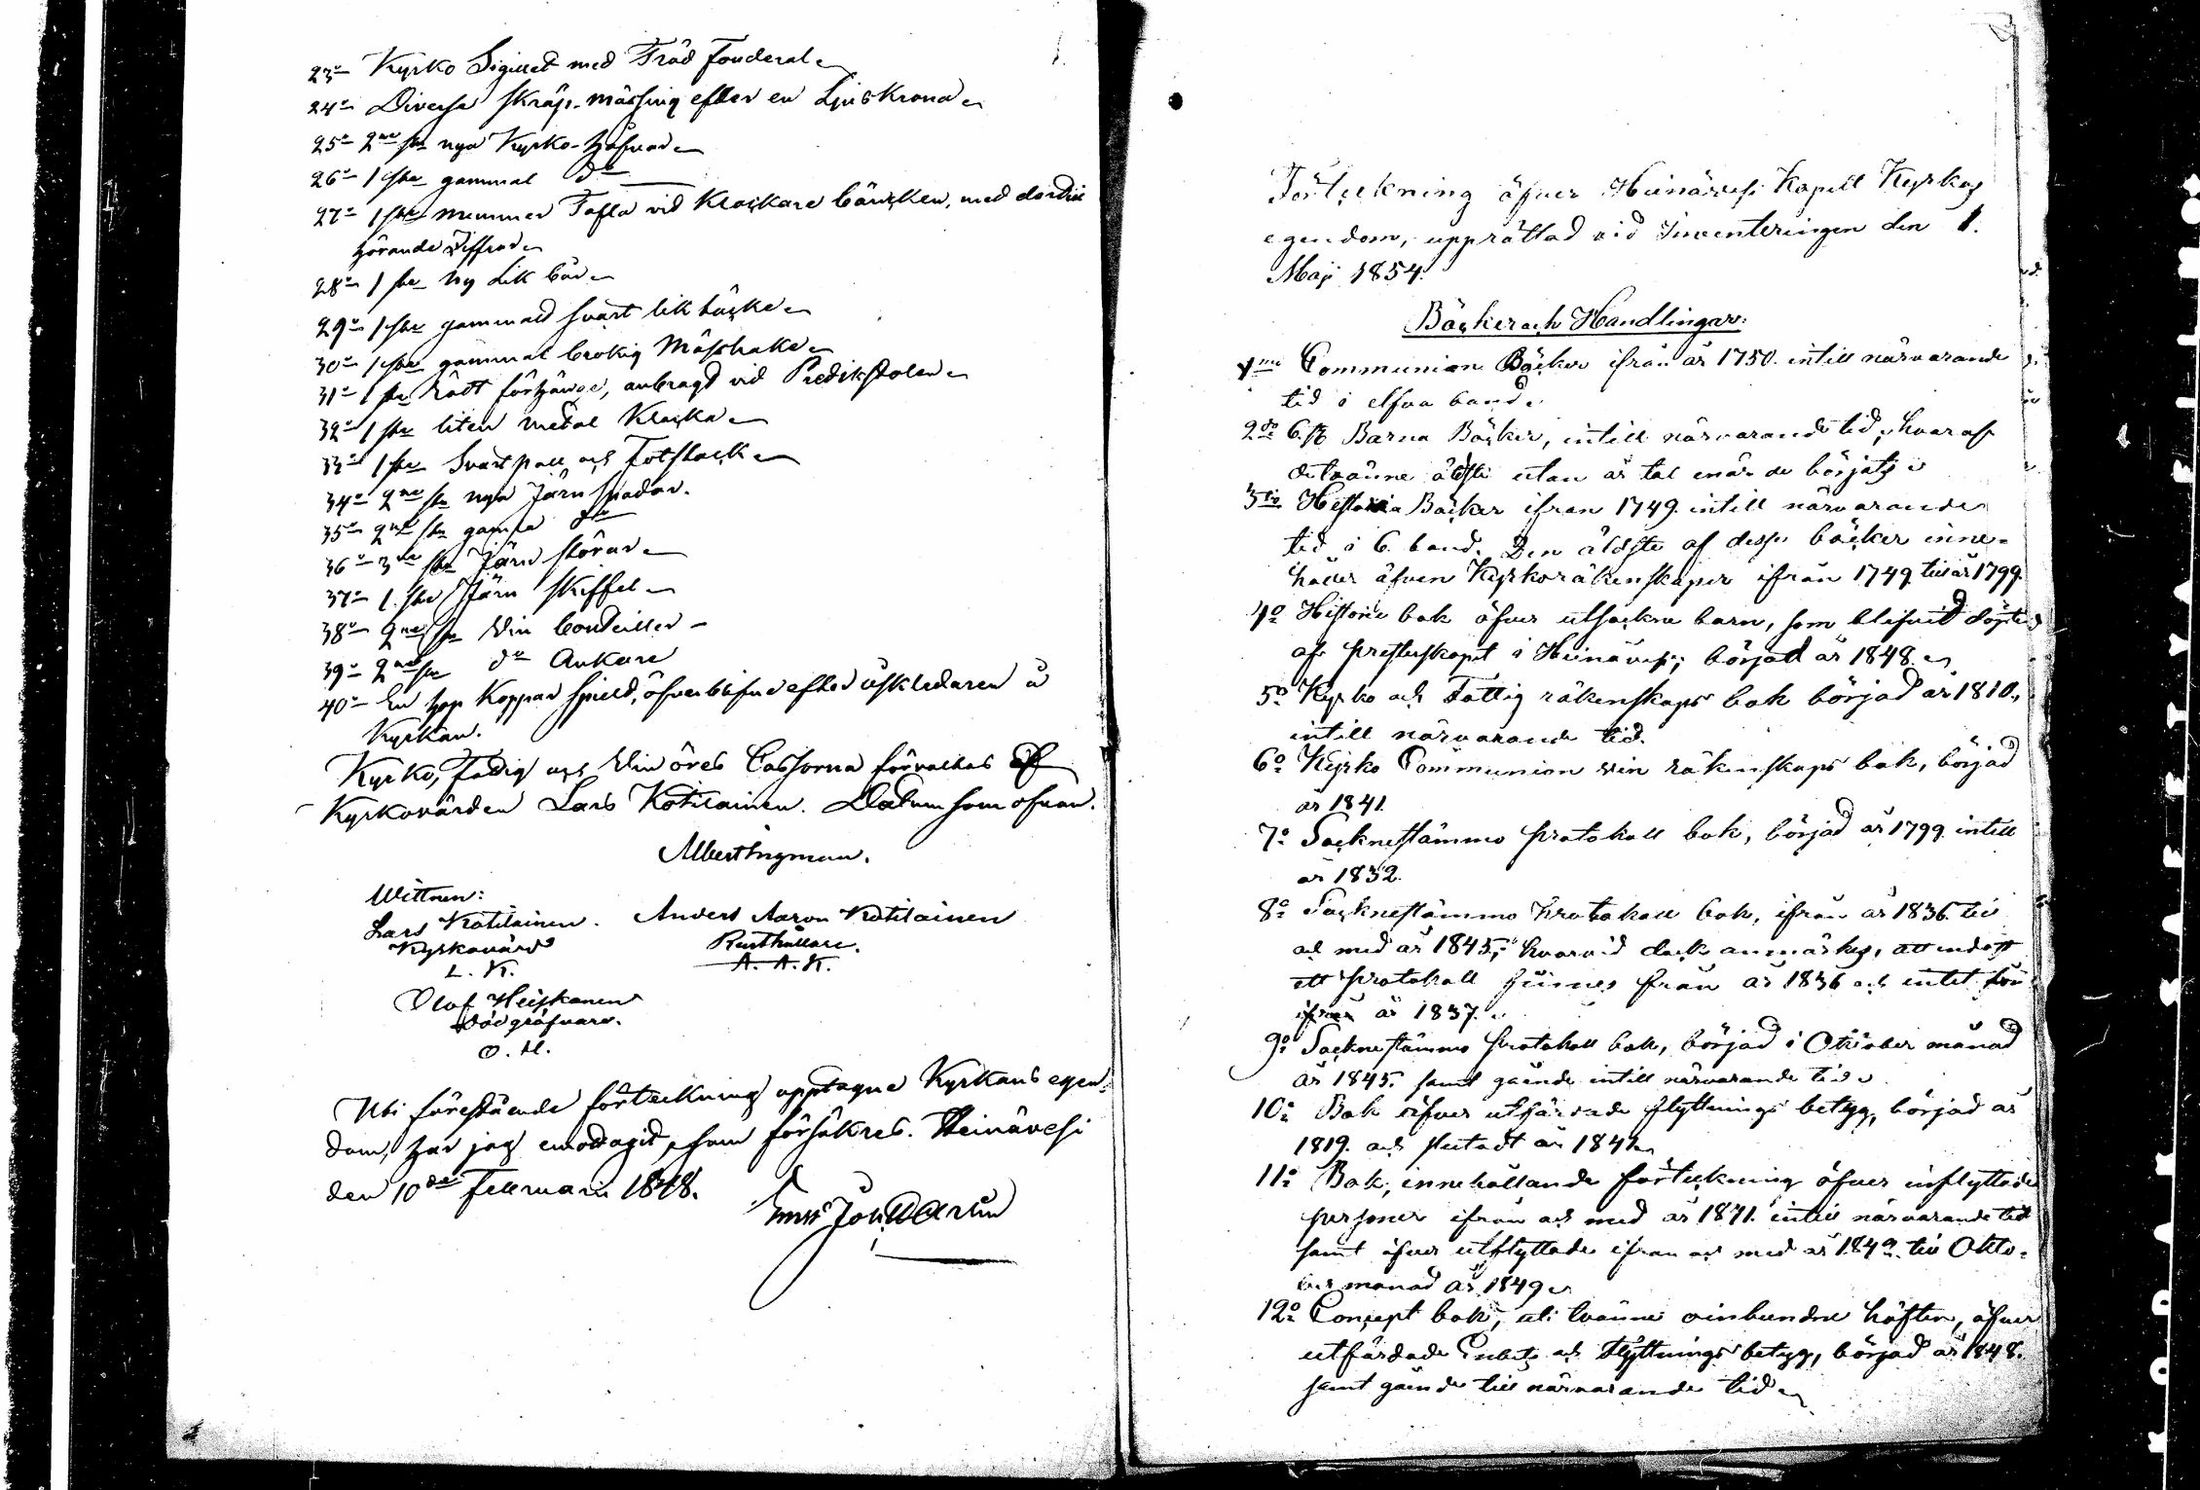 23o Kyrko Sigillet med Träd fouderal
24o Diverse skräp-mässing efter en Ljuskrona
25o 2ne st. nya Kyrko-håfvar
26o 1 st. gammal do
27o 1 st. nummer Tafla vid Klockare bänken, med dertill
hörande Ziffror
28o 1 st. ny Lik bår
29o 1 st. gammalt svart lik täcke
30o 1 st. gammal brokig Mässhake
31o 1 st. rött förhänge, anbragt vid Predikstolen
32o 1 st. liten metal Klocka
33o 1 st. Svart pall och Fotstack
34o 2ne st. nya Järn spadar.
35o 2ne st. gamla do
36o 3ne st. Järn störar
37o 1 st. Järn skiffel
38o 2ne st. Vin bouteiller
39o 2ne st. do Ankare
40o En hop Koppar spild, öfverblifne efter åskledaren å
Kyrkan.
Kyrko, Fattig och Vin öres Cassorna förvaltas af
Kyrkovärden Lars Kotilainen. Datum som ofvan.
Albert Ingman.
Wittnen:
Lars Kotilainen. Anders Aaron Kotilainen
Kyrkovärd Rusthållare.
L. K. A. A. K.
Olof Heiskanen
Dödgräfvare.
O. H.
Uti föreståande förteckning upptagne Kyrkans egen-
dom, har jag emottagit, som försäkres. Heinävesi
den 10de Februarii 1848.
Joh.
Förteckning öfver Heinävesi Kapell Kyrkas
egendom, upprättad vid Inventeringen den 1.
Maji 1854.
Böcker och Handlingar:
1mo Communion Böcker ifrån år 1750. intill närvarande
tid i elfva band.
2do 6. st Barna Böcker, intill närvarande tid, hvaraf
de tvänne äldste utan år tal när de börjats
3tio Historia Böcker ifrån 1749. intill närvarande
tid i 6. band. Den äldste af desse böcker inne-
håller äfven Kyrkoräkenskaper ifrån 1749 till år 1799.
4o Historie bok öfver utsockne barn, som blifvit döpte
af presterskapet i Heinävesi, börjad år 1848.
5o Kyrko och Fattig räkenskaps bok börjad år 1810.,
intill närvarande tid.
6o Kyrko Communion vin räkenskaps bok, börjad
år 1841.
7o Socknestämmo protokoll bok, börjad år 1799. intill
år 1832.
8o Socknestämmo Protokoll bok, ifrån år 1836. till
och med år 1845; hvarvid dock anmärkes, att endast
ett protokoll finnes från år 1836 och intet för
ifrån år 1837.
9o Socknestämmo protokoll bok, börjad i Oktober månad
år 1845. samt gående intill närvarande tid.
10o Bok öfver utfärdade flyttnings betyg, börjad år
1819. och slutadt år 1842.
11o Bok, innehållande förteckning öfver inflyttade
personer ifrån och med år 1871. intill närvarande tid
samt öfver utflyttade ifrån och med år 1842. till Okto-
ber månad år 1849.
12o Concept bok, uti tvänne oinbundne häften, öfver
utfärdade och Flyttnings betyg, börjad år 1848.
samt gående till närvarande tid